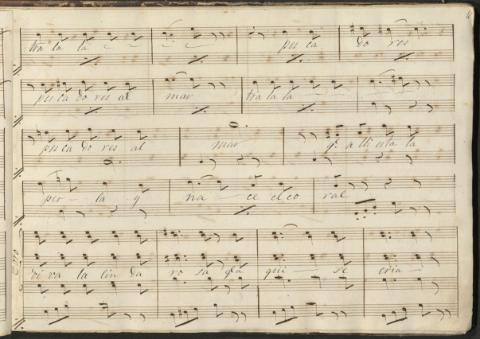 tra la la
pes ca do res
pes ca do res al mar tra la la
pes ca do res al mar q. alli esta la
per la y na ce el co ral
di va la lin da ro sa q.
cria